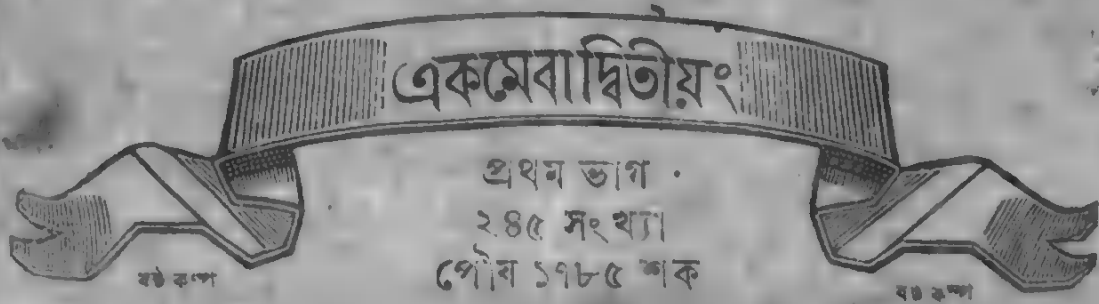 একমেবাদ্বিতীয়ং
প্রথম ভাগ
২৪৫ সংখ্যা
পৌষ ১৭৮৫ শক
ষষ্ঠ কল্প
ষষ্ঠ কল্প